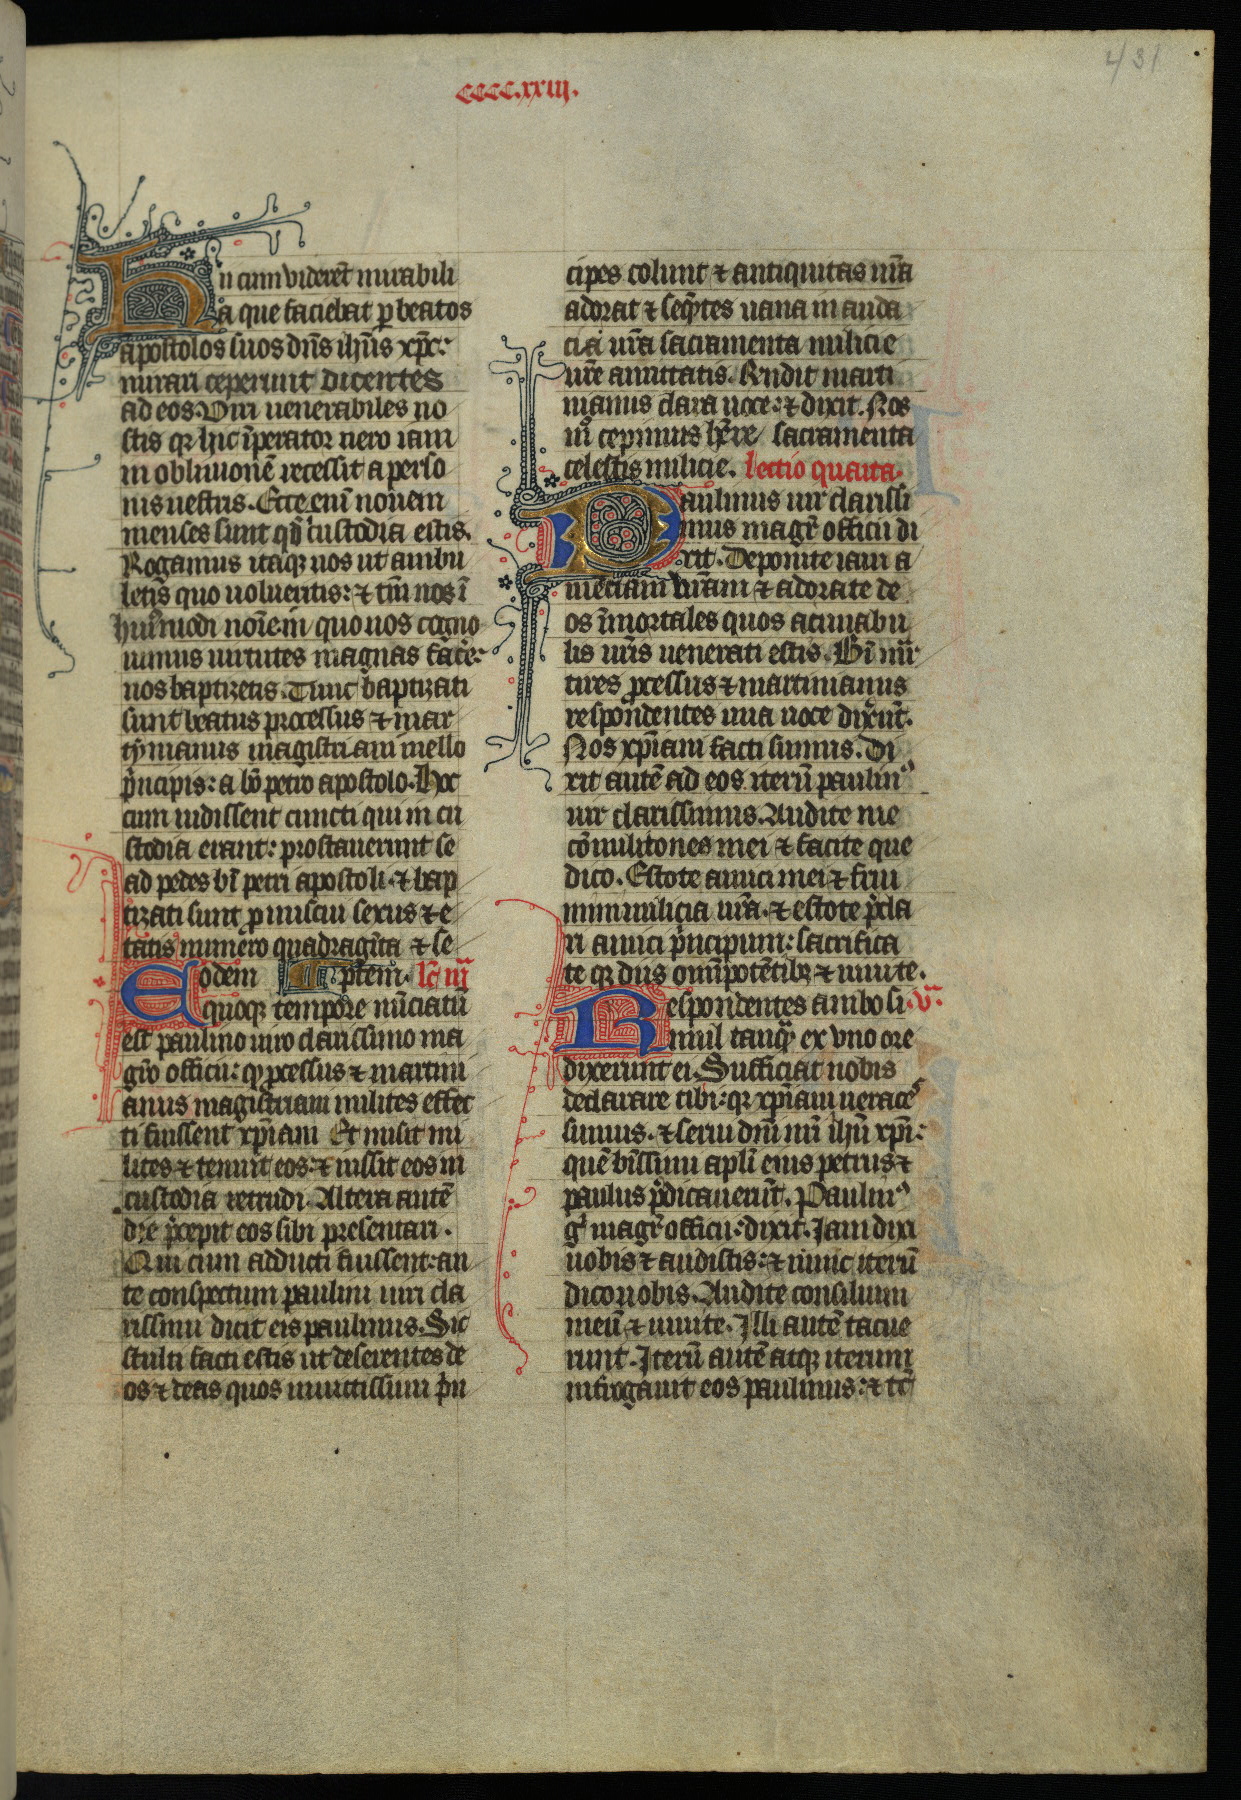 431
cccc.xxiij.
Hii cum videret mirabili
a que faciebat p beatos
apostolos suos dns ihus xpc:
mirari ceperunt dicentes
ad eos. Viri uenerabiles no
stis qr hic īperator nero iam
in obliuionē recessit a perso
nis uestris. Ecce enī nouem
menses sunt qd custodia estis.
Rogamus itaqz uos ut ambu
letis quo uolueritis: & tm̄ nos ī
huiusmodi noīe in quo uos cogno
uimus uirtutes magnas facē:
nos baptizetis. Tunc baptizati
sunt beatus processus & mar
tymanus magistriam mello
principis: a bō petro apostolo. Hoc
cum uidissent cuncti qui in cu
stodia erant: prostauerunt se
ad pedes bī petri apostoli. & bap
tizati sunt pmiscui sexus & e
tatis numero quadragīta & se
ptem. lc iij
Eodem
quoqz tempore nūciatū
est paulino uiro clarissimo ma
gro officii: qp pcessus & martini
anus magistriam milites effec
ti fuissent xpiani Et misit mi
lites & tenuit eos: & iussit eos in
custodia retrudi. Altera autē
die pcepit eos sibi presentari.
Qui cum adducti fuissent: an
te conspectum paulini uiri cla
rissimi dicit eis paulinus. Sic
stulti facti estis ut deserentes de
os & deas quos inuictissimi pn
cipes colunt & antiquitas nra
adorat & seqntes uana manda
cia ura sacramenta milicie
ure amittatis. Rndit marti
nianus clara uoce: & dixit. Nos
m cepimus hre sacramenta
celestis milicie. lectio quarta.
Paulinus uir clarissi
mus magr officii di
xit. Deponite iam a
mentiam uram & adorate de
os īmortales quos acunabu
lis uris uenerati estis. Bi mr
tires pcessus & martinianus
respondentes una uoce dixnt.
Nos xpiani facti sumus. Di
xit autē ad eos iterū paulin
uir clarissimus. Audite me
cōmilitones mei & facite que
dico. Estote amici mei & frui
mini milicia ura. & estote pcla
ri amici pncipum: sacrifica
te qr diis omīpotētibz & uiuite.
Respondentes ambo si. v.
mul tanqz ex uno ore
dixerunt ei. Sufficiat nobis
declarare tibi: qr xpiani ueraces
sumus. & serui dni nri ihu xpi:
quē bīssimi apli eius petrus &
paulus pdicauerūt. Paulin
g magr officii: dixit. Iam dixi
uobis & audistis: & nunc iterū
dico uobis. Audite consilium
meū & uiuite. Illi autē tacue
runt. Iterū autē atqz iterum
intirogauit eos paulinus: & tc